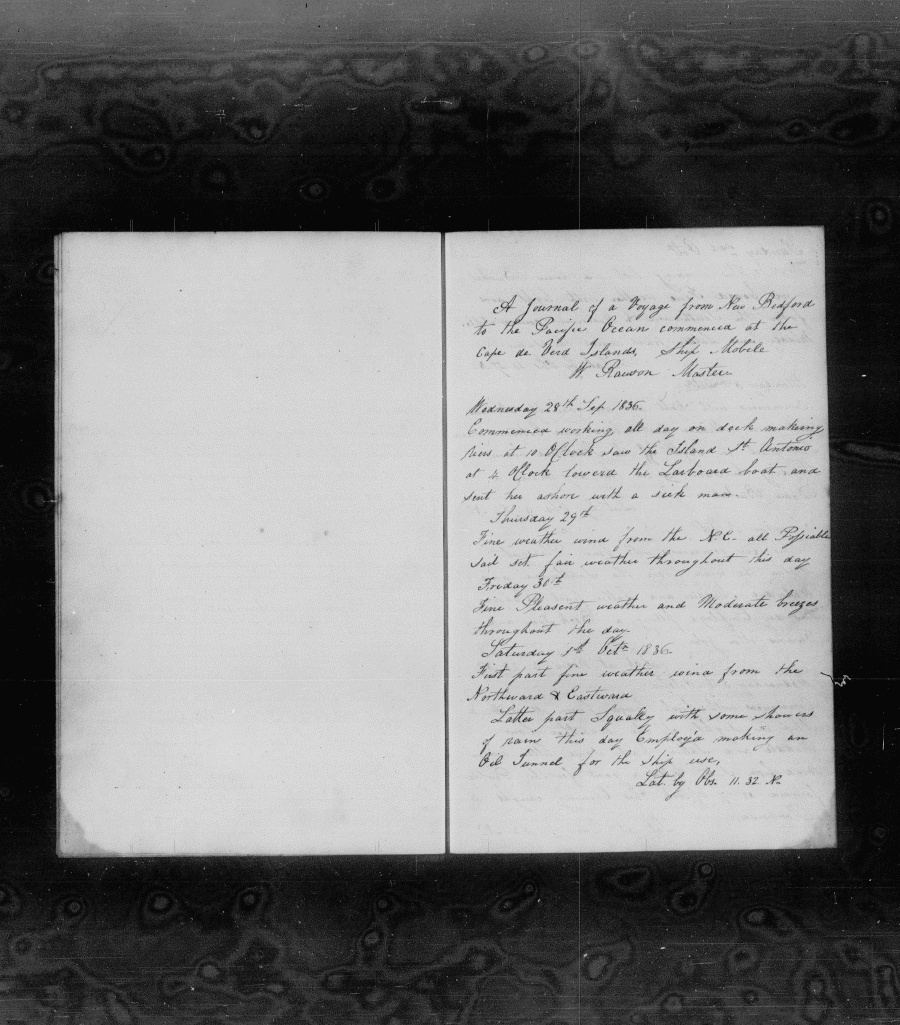 A Journal of a Voyage from New Bedford
to the Pacific Ocean commenced at the
Cape de Verd Islands, Ship Mobile
W. Rawson Master
Wednesday 28th Sep 1836.
Commenced working all day on deck makeing
at 10 OClock saw the Island St Antonio
at 4 OClock lowerd the Larboard boat and
sent her ashore with a sick man.
Thursday 29th
Fine weather wind from the N.E. all Possiable
sail set fair weather throughout this day
Friday 30th
Fine Pleasent weather and Moderate breezes
throughout the day.
Saturday 1st Octr 1836.
First part fine weather wind from the
Northward & Eastward
Latter part Squally with some showers
of rain this day Employd making an
Oil Tunnel for the ship use,
Lat. by Obs. 11.32 N.